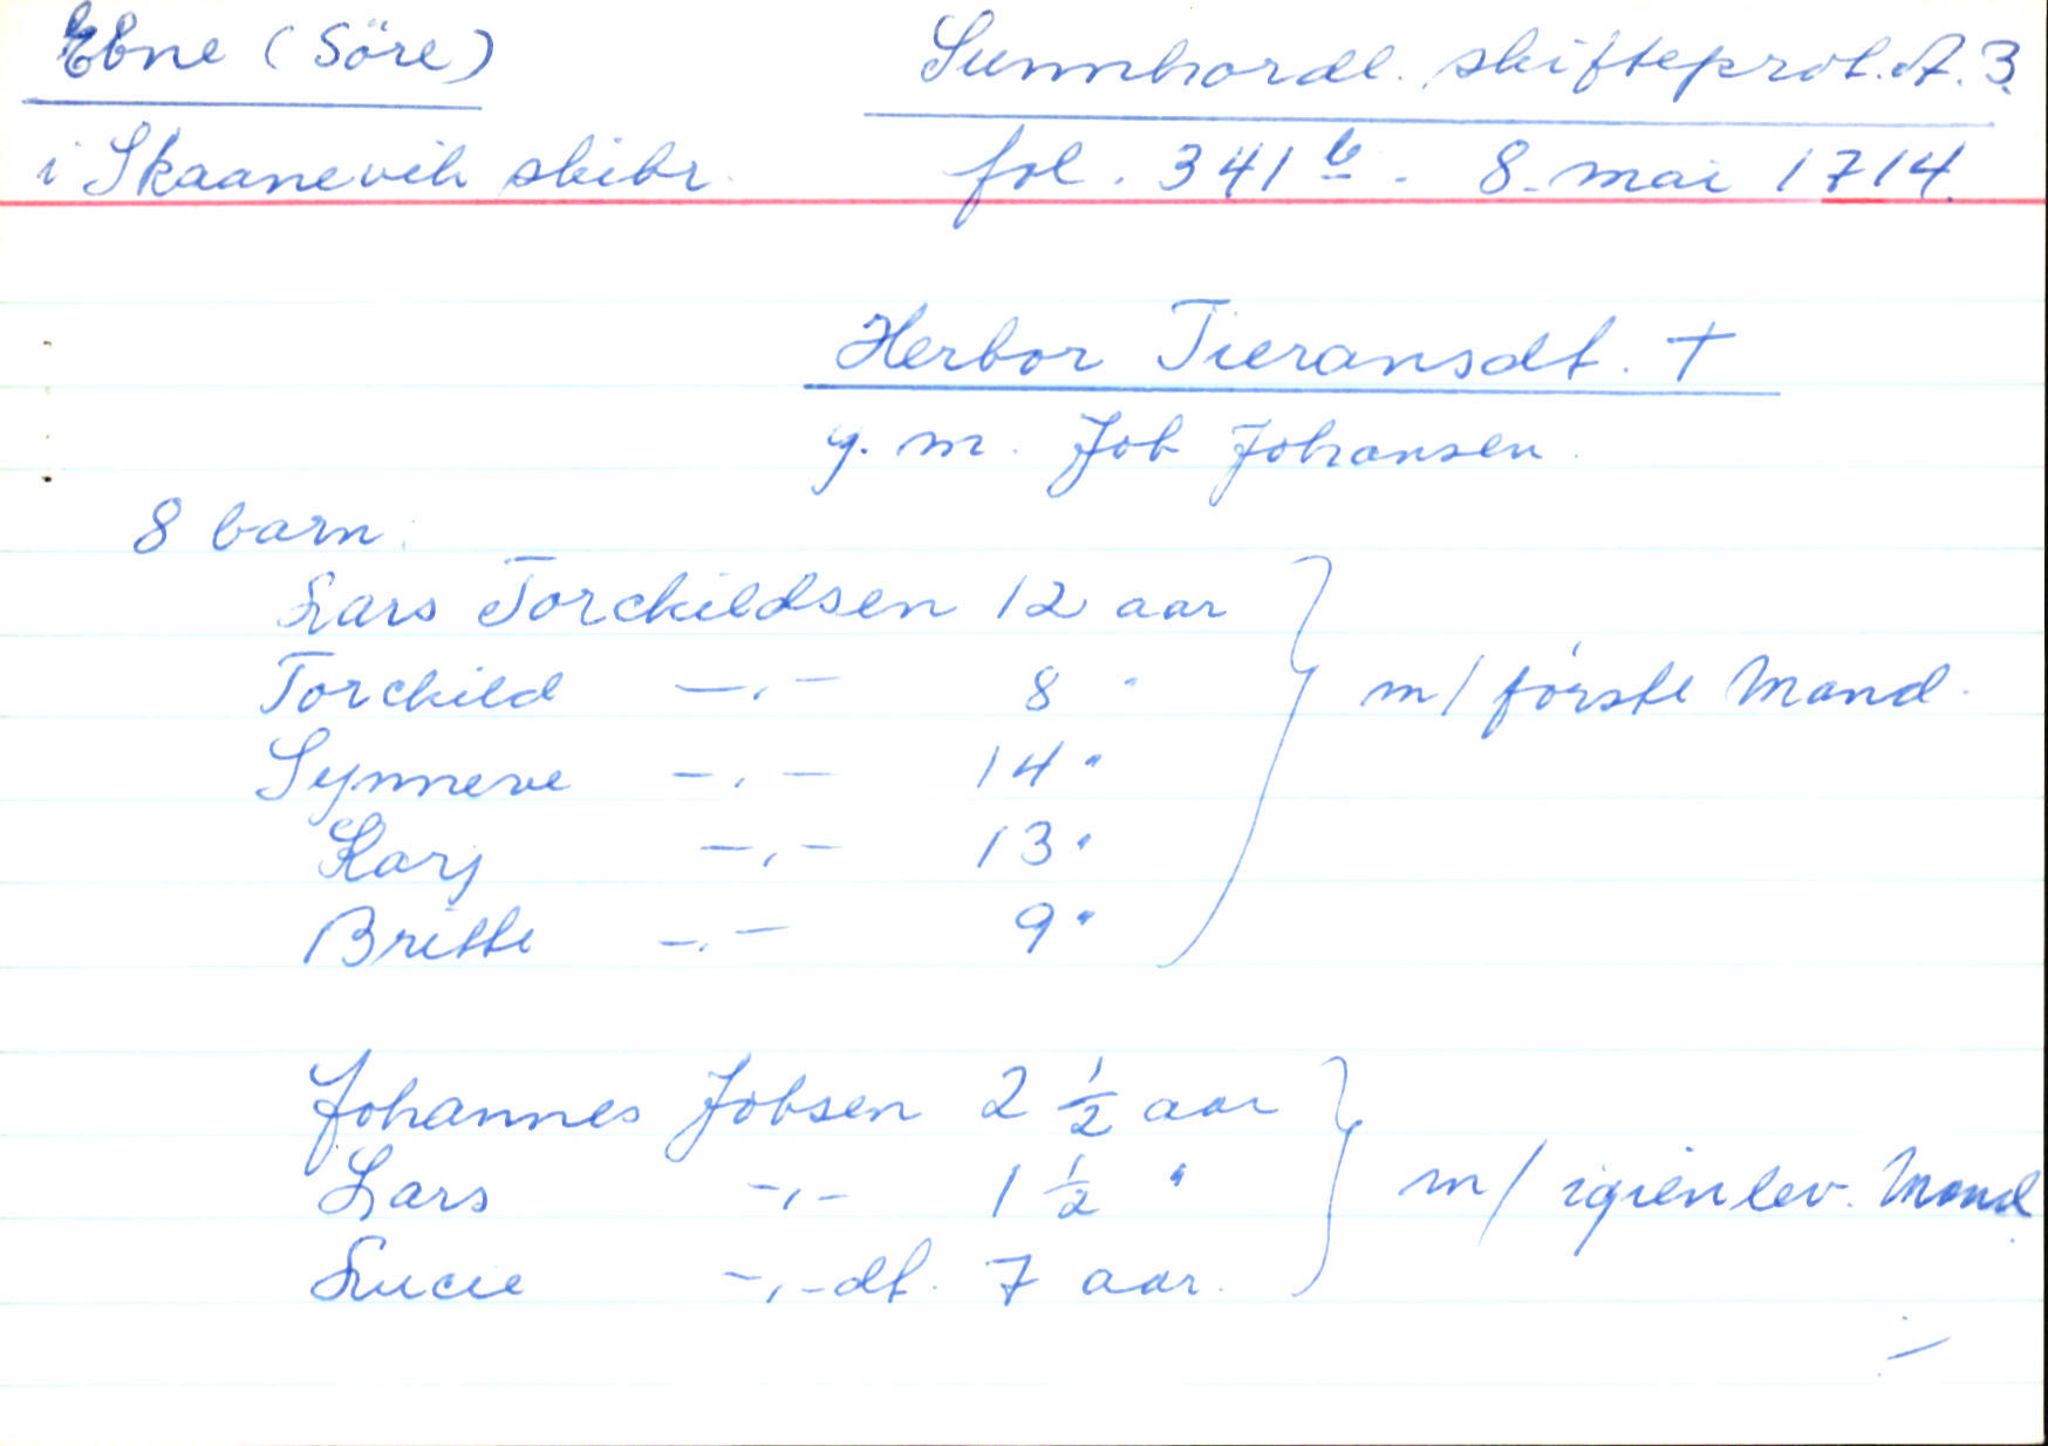 Ebne (Söre)
Sunnhordl. skifteprot. A. 3.
i Skaanevik skibr.
fol. 341 b. 8. mai 1714.
Herbor Tieransdt. †
g. m. Job Johansen.
8 barn:
Lars Torchildsen 12 aar
Torchild —„— 8 "
m/ förste Mand.
Synneve —„— 14 "
Karj —„— 13 "
Britte —„— 9 "
Johannes Jobsen 2 ½ aar
Lars —„— 1 ½ "
m/ igienlev. Mand
Lucie —„—dt. 7 aar.